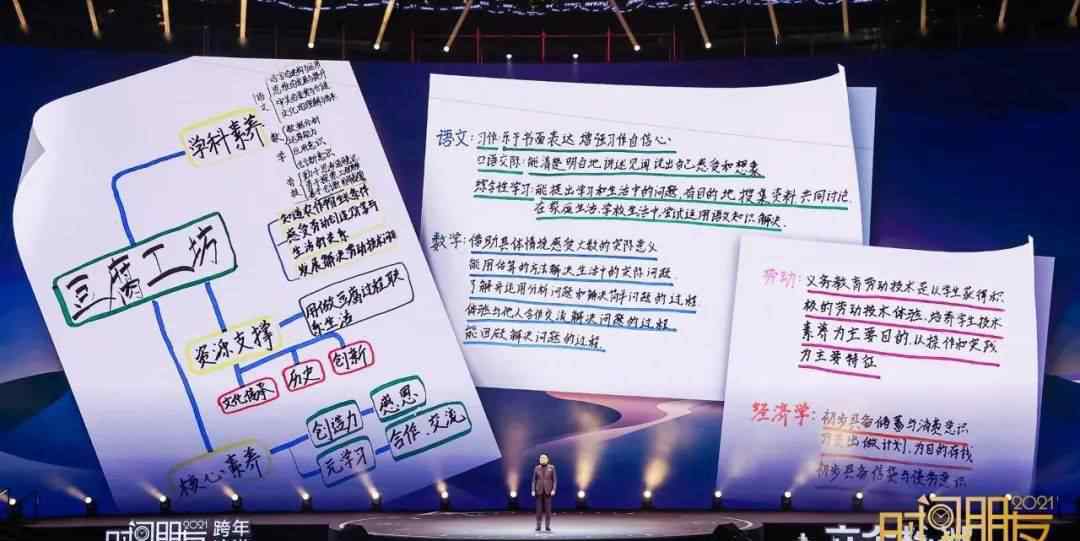 学科素养
语文
数学
数据分析
运算能力
应用意识
创新意识
知道农作物的生长条件
感受劳动创造价值与
生活的关系
发展解决劳动技术问
豆腐工坊
资源支撑
用做豆腐过程联
系生活
文化传承
历史
创新
核心素养
创造力
感恩
元学习
合作、交流
语文:习作:乐于书面表达 增强习作自信心。
口语交际:能清楚明白地讲述见闻说出自己感受和想象
综合性学习:能提出学习和生活中的问题,有目的地搜集资料共同讨论。
在家庭生活、学校生活中,尝试运用语文知识解决。
数学:借助具体情境感受大数的实际意义
能用估算的方法解决生活中的实际问题
了解并运用分析问题和解决简单问题的过程
体验与他人合作交流解决问题的过程
能回顾解决问题的过程
劳动:义务教育劳动技术是以学生获得积
极的劳动技术体验,培养学生技术
素养为主要目的,以操作和实践
为主要特征
经济学:初步具备储蓄与消费意识
做计划,为目的存钱
初步具备信贷与债务意识
时间朋友 2021 跨年
时间朋友 2021